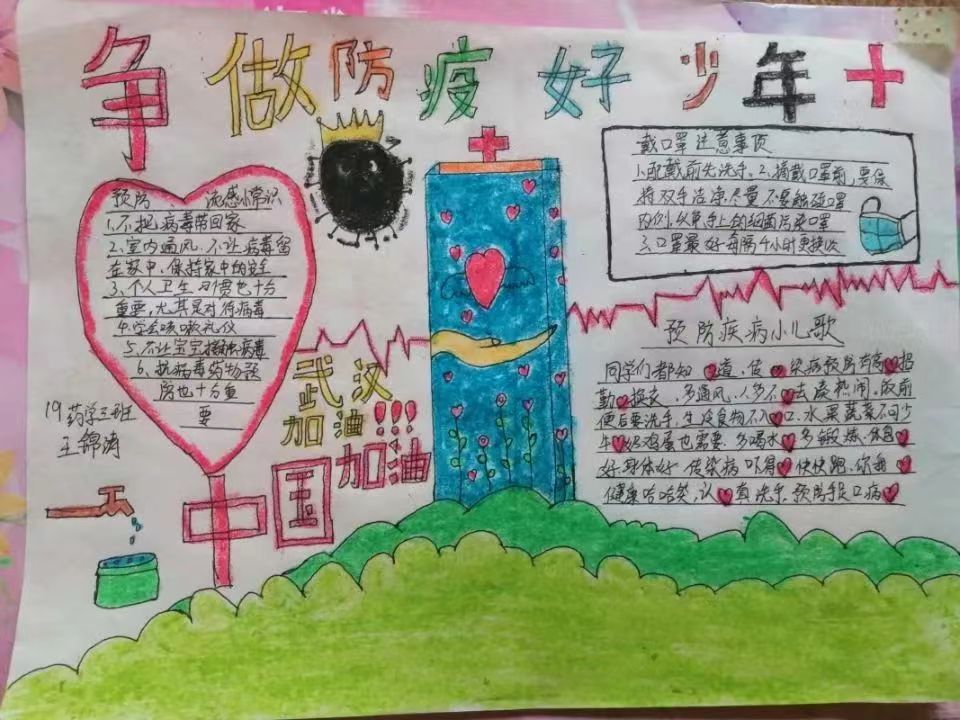 争做防疫好少年
预防 流感小常识
1、不把病毒带回家
2、室内通风、不让病毒留
在家中、保持家中的安全
3、个人卫生习惯也十分
重要,尤其是对待病毒
4、学会咳嗽礼仪
5、不让宝宝接触病毒
6、抗病毒药物预
防也十分重
要
19药学三班
王锦涛
武汉
加油!!!
中国加油
戴口罩注意事项
1、配戴前先洗手。2、摘戴口罩前,要保
持双手洁净尽量不要触碰口罩
内侧以免手上的细菌污染口罩
3、口罩最好每隔4小时更换次
预防疾病小儿歌
同学们都知道,传染病预防有高招
勤换衣、多通风、人多不去凑热闹、饭前
便后要洗手、生冷食物不入口、水果蔬菜不可少
牛奶鸡蛋也需要、多喝水多锻炼、休息
好身体好 传染病吓得快快跑、你我
健康哈哈笑、认真洗手、预防手足口病